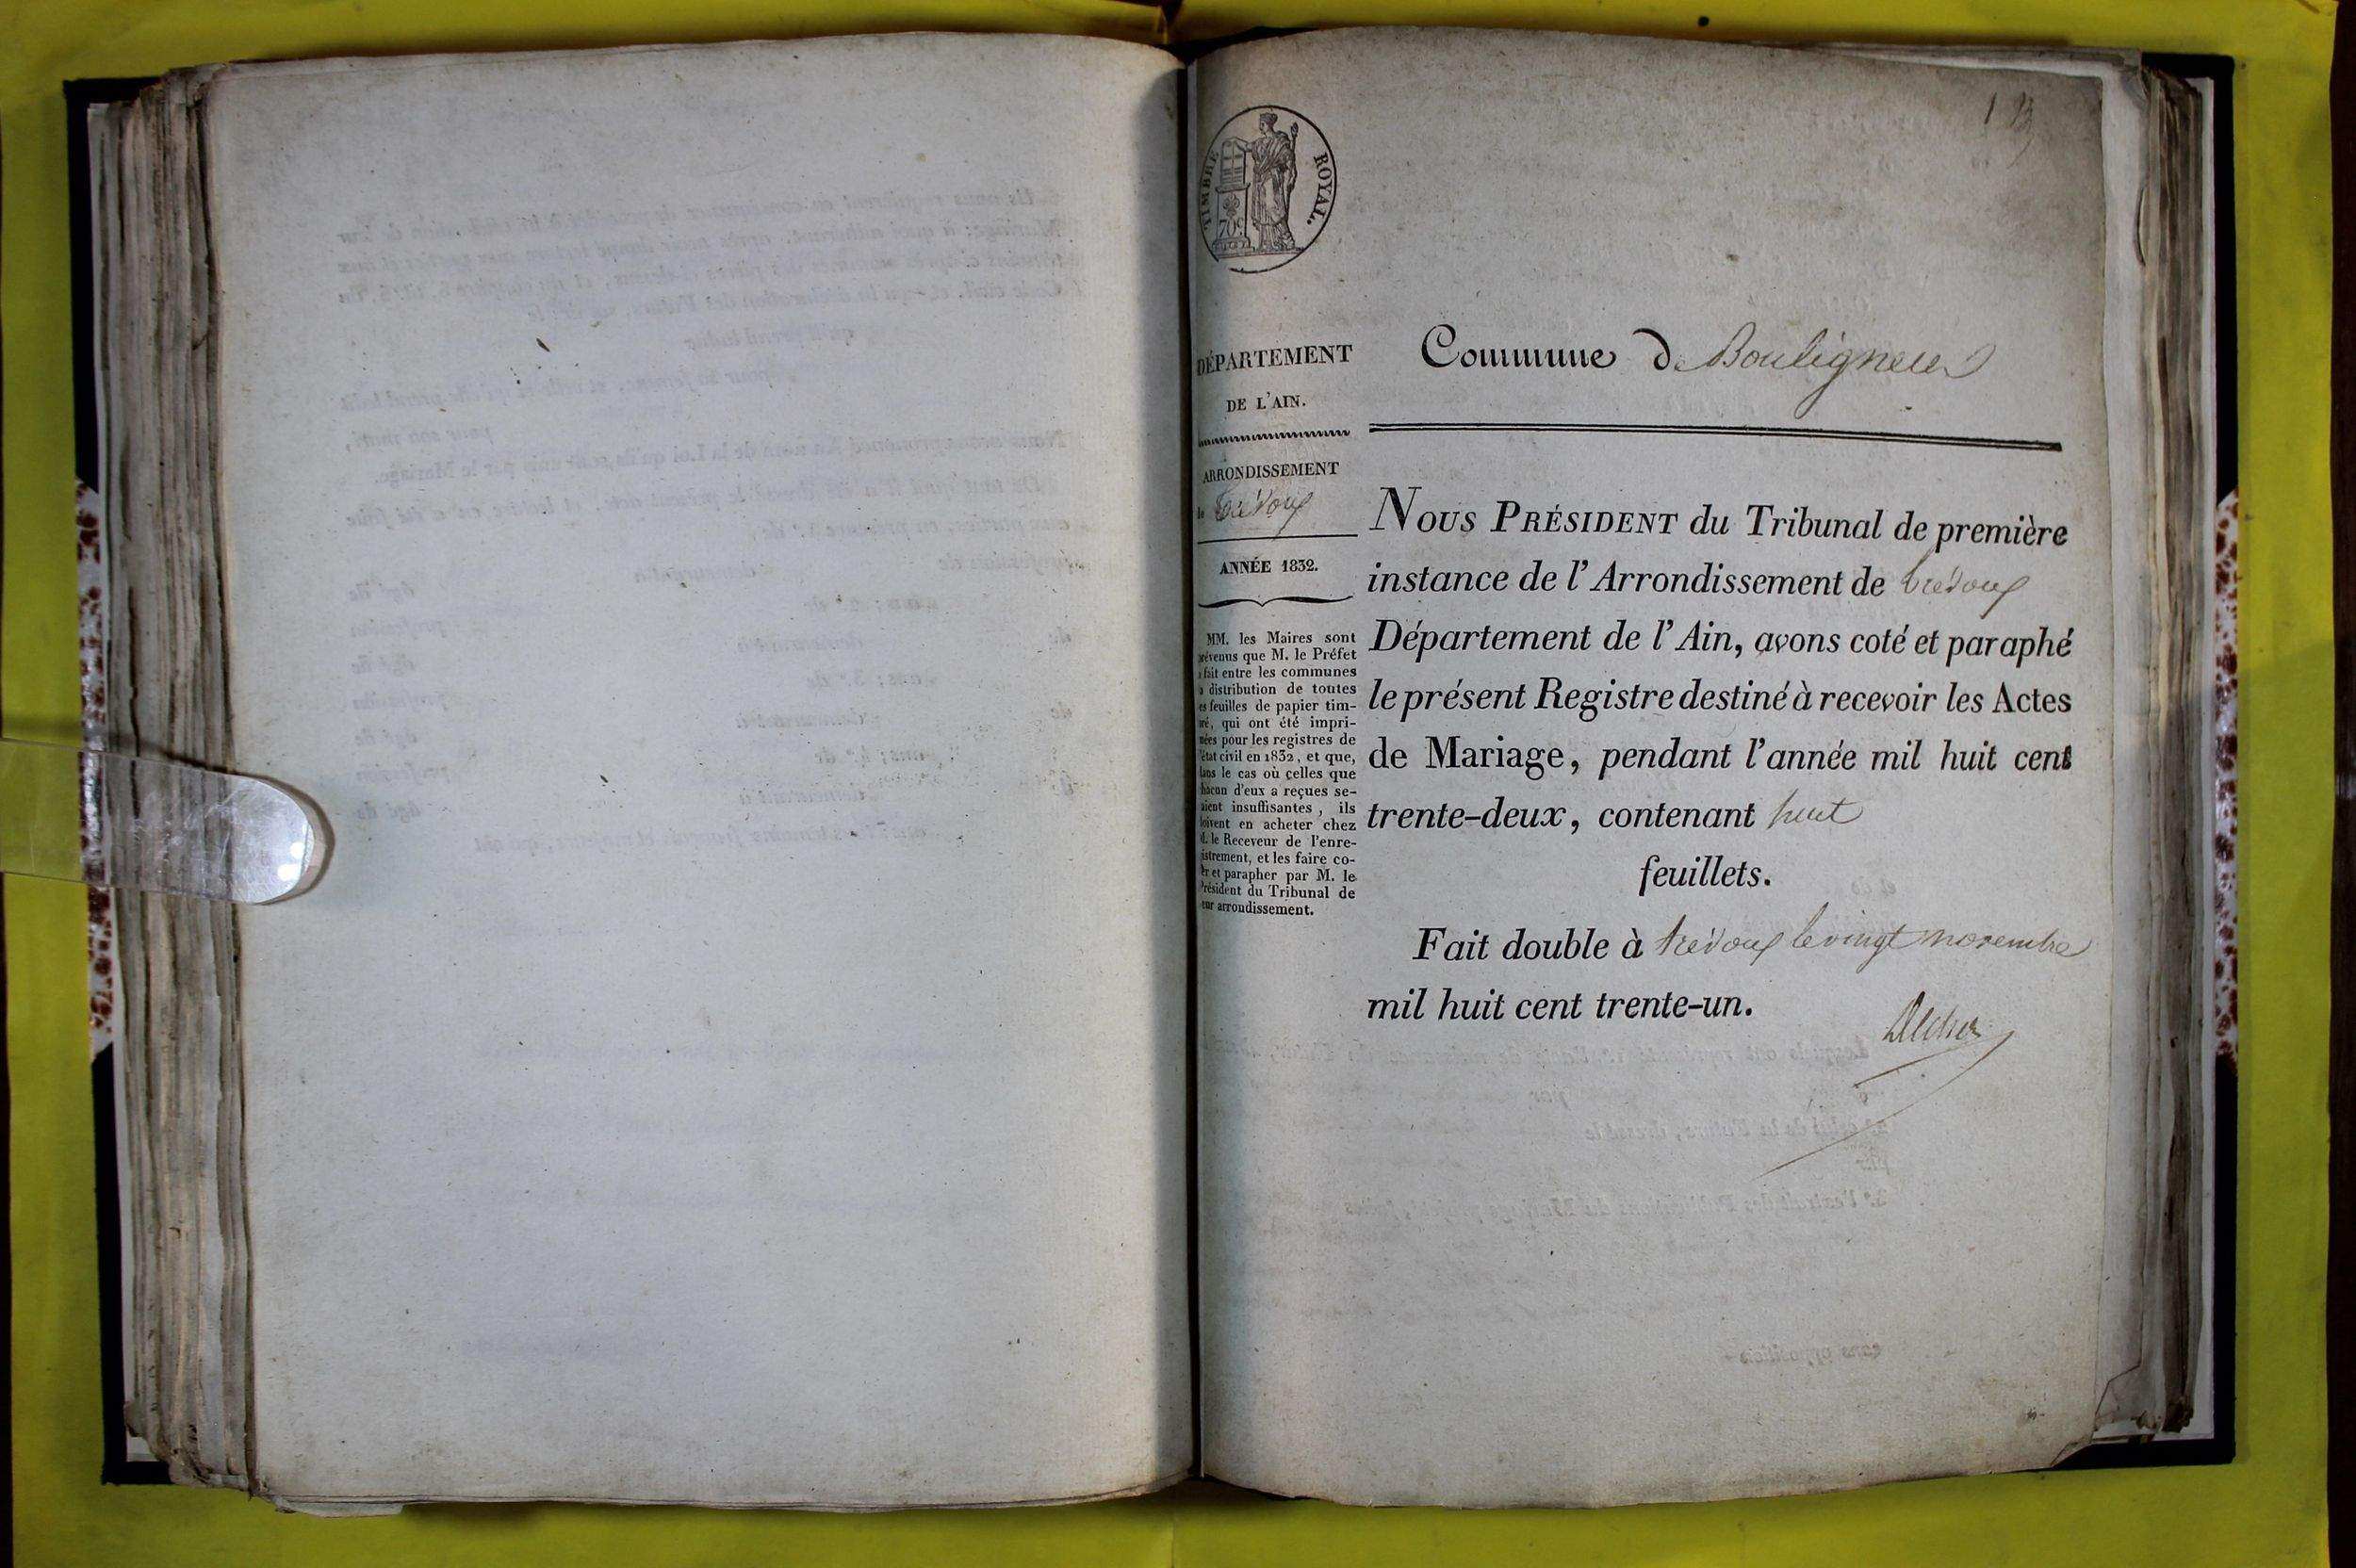 TIMBRE ROYAL.
70c
DÉPARTEMENT
DE L'AIN.
ARRONDISSEMENT
de trévoux
ANNÉE 1832.
MM. les Maires sont
prévenus que M. le Préfet
a fait entre les communes
la distribution de toutes
les feuilles de papier tim-
bré, qui ont été impri-
mées pour les registres de
l'état civil en 1832, et que,
dans le cas où celles que
chacun d'eux a reçues se-
raient insuffisantes, ils
doivent en acheter chez
M. le Receveur de l'enre-
gistrement, et les faire co-
ter et parapher par M. le
Président du Tribunal de
leur arrondissement.
1
Commune de Bouligneux
NOUS PRÉSIDENT du Tribunal de première
instance de l'Arrondissement de trévoux
Département de l'Ain, avons coté et paraphé
le présent Registre destiné à recevoir les Actes
de Mariage, pendant l'année mil huit cent
trente-deux, contenant huit
feuillets.
Fait double à trévoux le vingt novembre
mil huit cent trente-un.